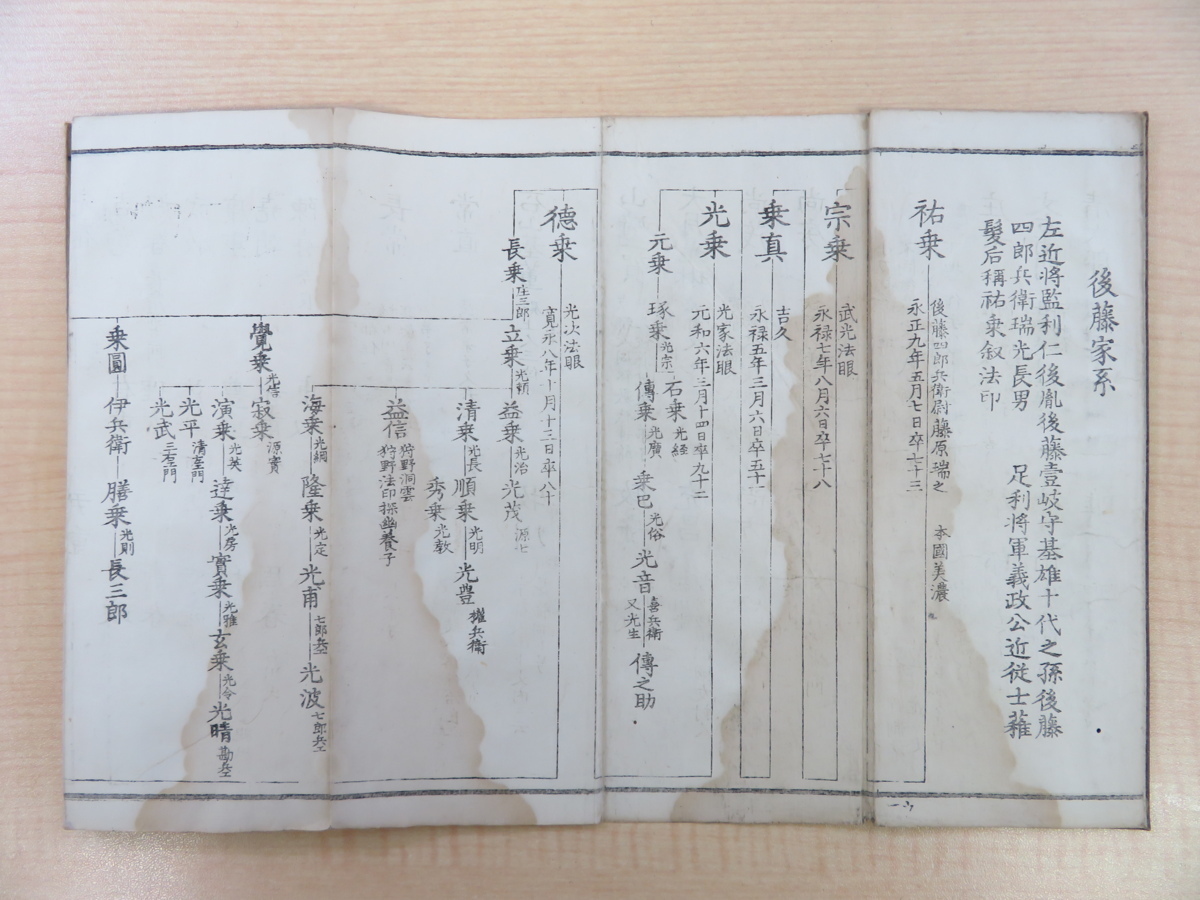 後藤家系
左近將監利仁後胤後藤壹岐守基雄十代之孫後藤
四郎兵衛瑞光長男 足利將軍義政公近従士薙
髪后稱祐乗叙法印
祐乗
後藤四郎兵衛尉藤原瑞之 本國美濃
永正九年五月七日卒七十三
宗乗
武光法眼
永禄七年八月六日卒七十八
乗真
吉久
永禄五年三月六日卒五十一
光乗
光家法眼
元和六年三月十四日卒九十二
元乗
琢乗 光宗
石乗 光経
傳乗 光廣
乗巳 光俗
光音 喜兵衛
又光生
傳之助
德乗
光次法眼
寛永八年十月十三日卒八十
長乗 庄三郎
立乗 光頼
益乗 光治
光茂 源七
清乗 光長
順乗 光明
光豊 權兵衛
秀乗 光敦
益信 狩野洞雲
狩野法印探幽養子
海乗 光綱
隆乗 光定
光甫 七郎兵エ
光波 七郎兵エ
覺乗 光信
寂乗 源實
演乗 光英
達乗 光房
實乗 光雅
玄乗 光令
光晴 勘兵エ
光平 清左門
光武 三右門
乗圓
伊兵衛
膳乗 光則
長三郎